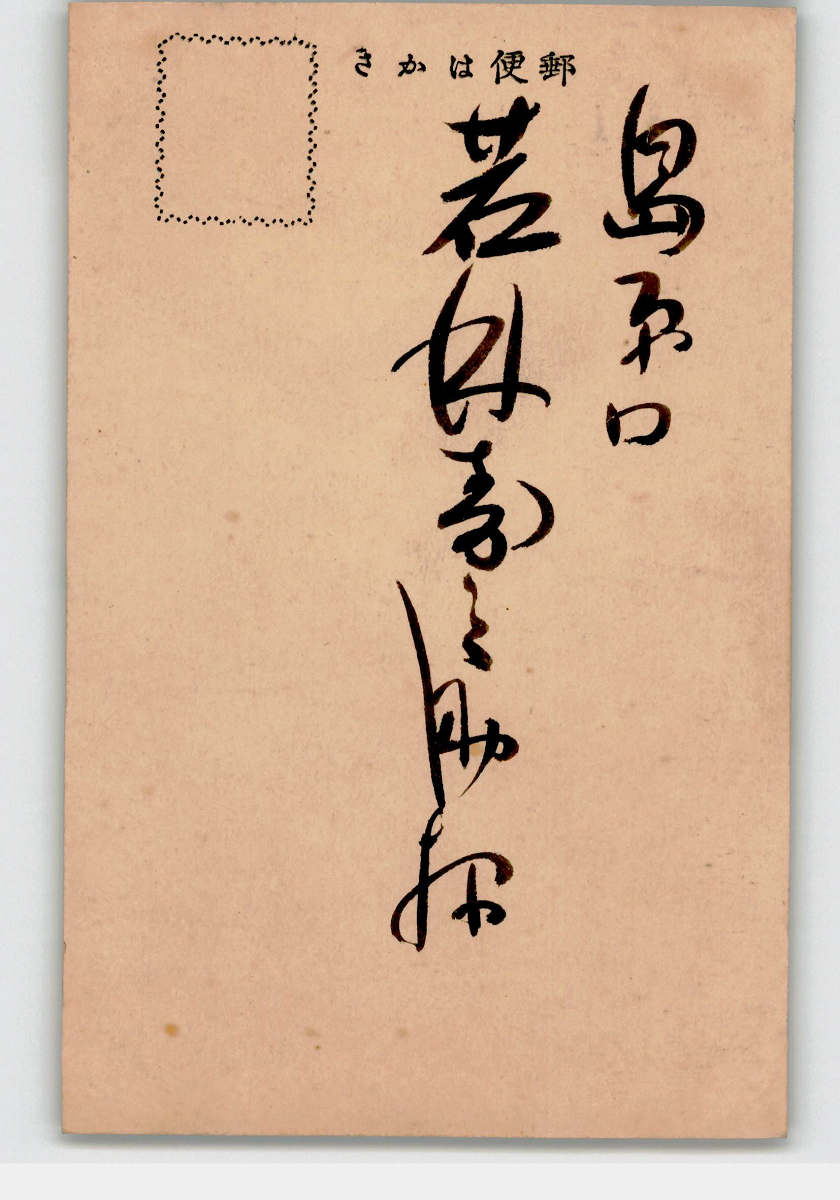 郵便はかき
島原口
若林寿之助様